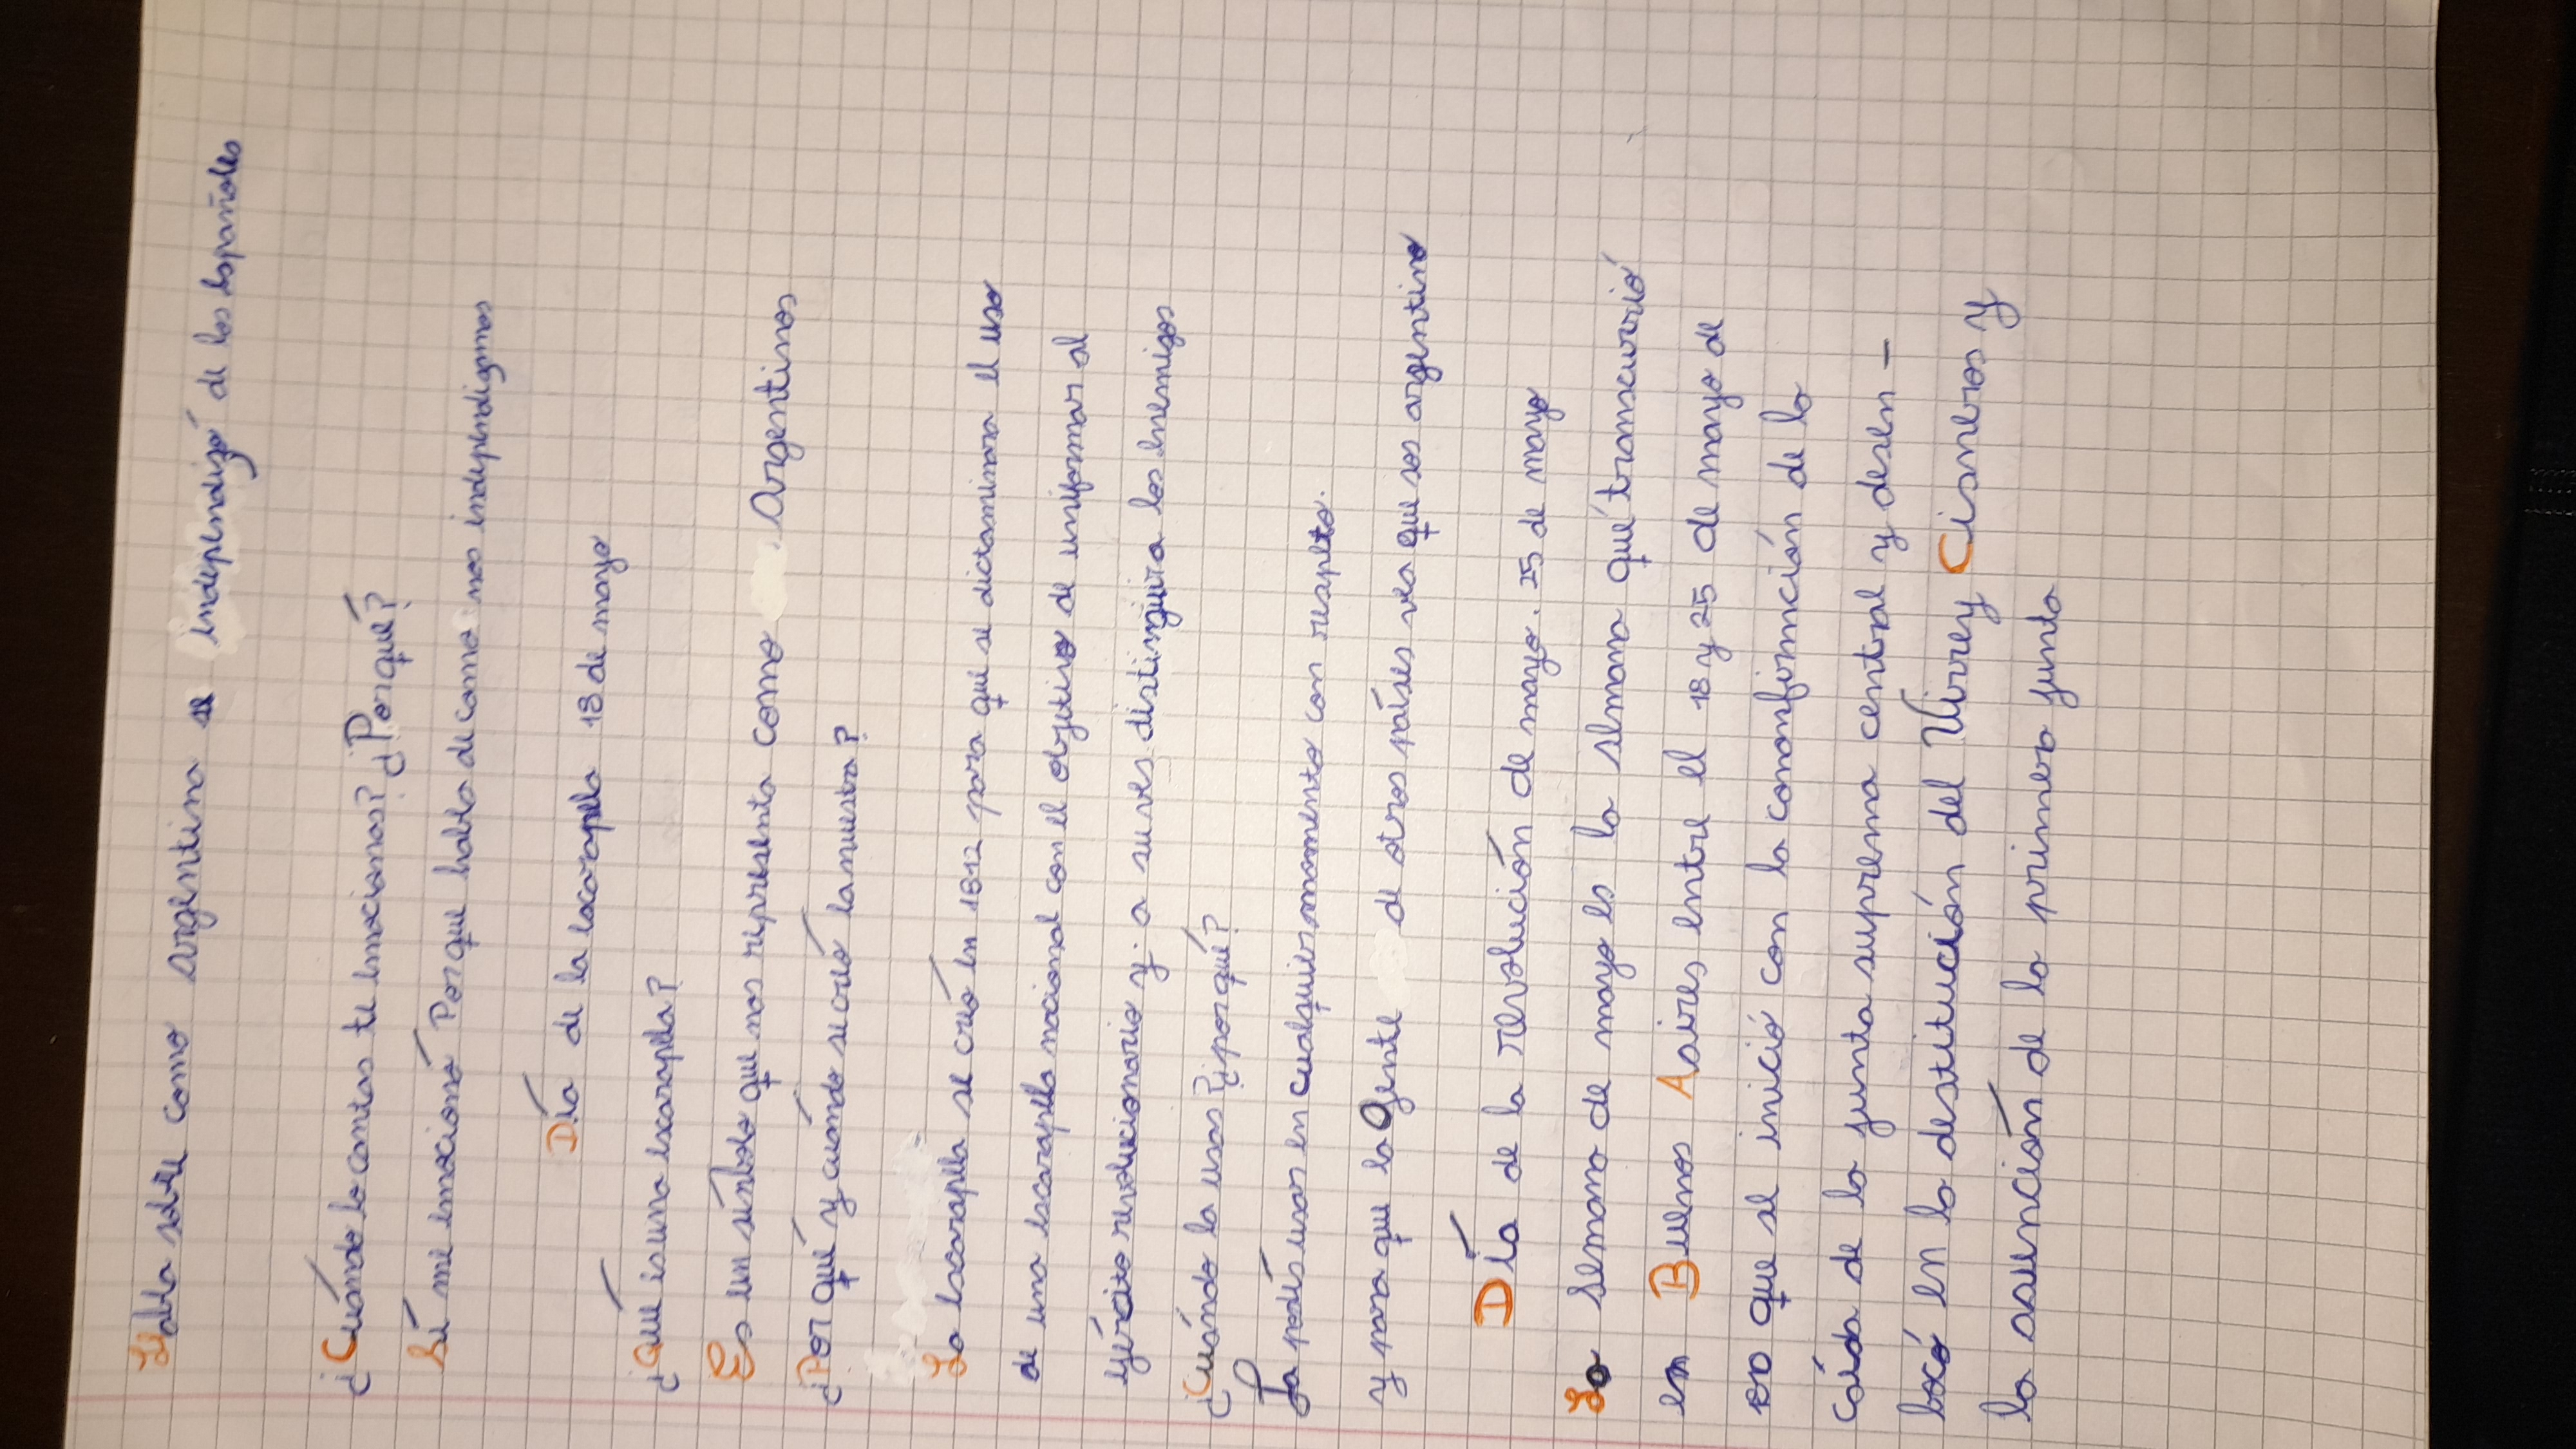 Habla sobre como argentina se independizó de los españoles
¿Cuándo lo contas te emocionas? ¿Porqué?
Sí me emocionó Porque habla de como nos independizamos
Día de la escarapela 18 de mayo
¿Qué es una escarapela?
Es un símbolo que nos representa como Argentinos
¿Por qué y cuándo se creó la nuestra?
La escarapela se creó en 1812 para que se dictaminara el uso
de una escarapela nacional con el objetivo de uniformar al
ejército revolucionario y a su ves distinguira los enemigos
¿Cuándo la usas? ¿porqué?
La podís usar en cualquier momento con respeto.
y para que la Gente de otros países vea que sos argentino
Día de la revolución de mayo. 25 de mayo
La semana de mayo es la semana qué transcurrió
en Buenos Aaires entre el 18 y 25 de mayo de
que se inició con la cononfirmción de la
caída de la junta suprema central y desen-
bocó en la destitución del Virrey Cisneros y
la asunción de la primera junta